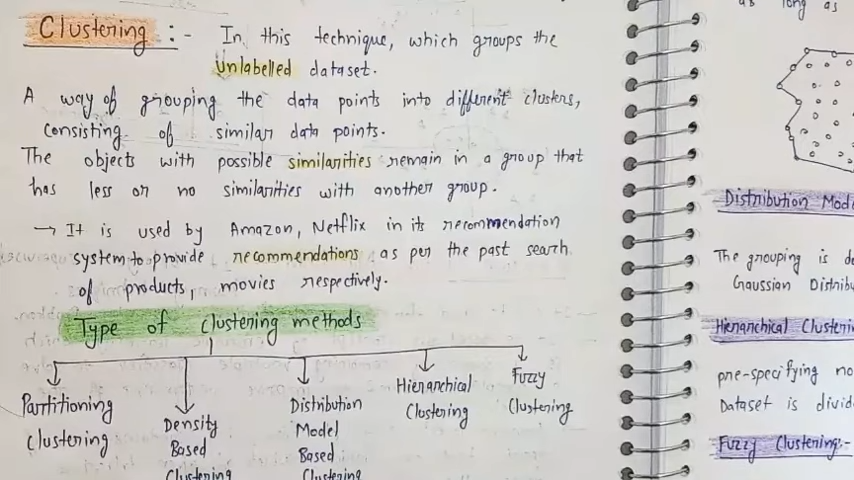 Clustering :- In this technique, which groups the
unlabelled dataset.
A way of grouping the data points into different clusters,
consisting of similar data points.
The objects with possible similarities remain in a group that
has less or no similarities with another group.
→ It is used by Amazon, Netflix in its recommendation
system to provide recommendations as per the past search
of products, movies respectively.
Type of clustering methods
Partitioning
Clustering
Density
Based
Clustering
Distribution
Model
Based
Clustering
Hierarchical
Clustering
Fuzzy
Clustering
as long as
Distribution Mode
The grouping is de
Gaussian Distribu
Hierarchical Clusterin
pre-specifying no
Dataset is divid
Fuzzy Clustering:-